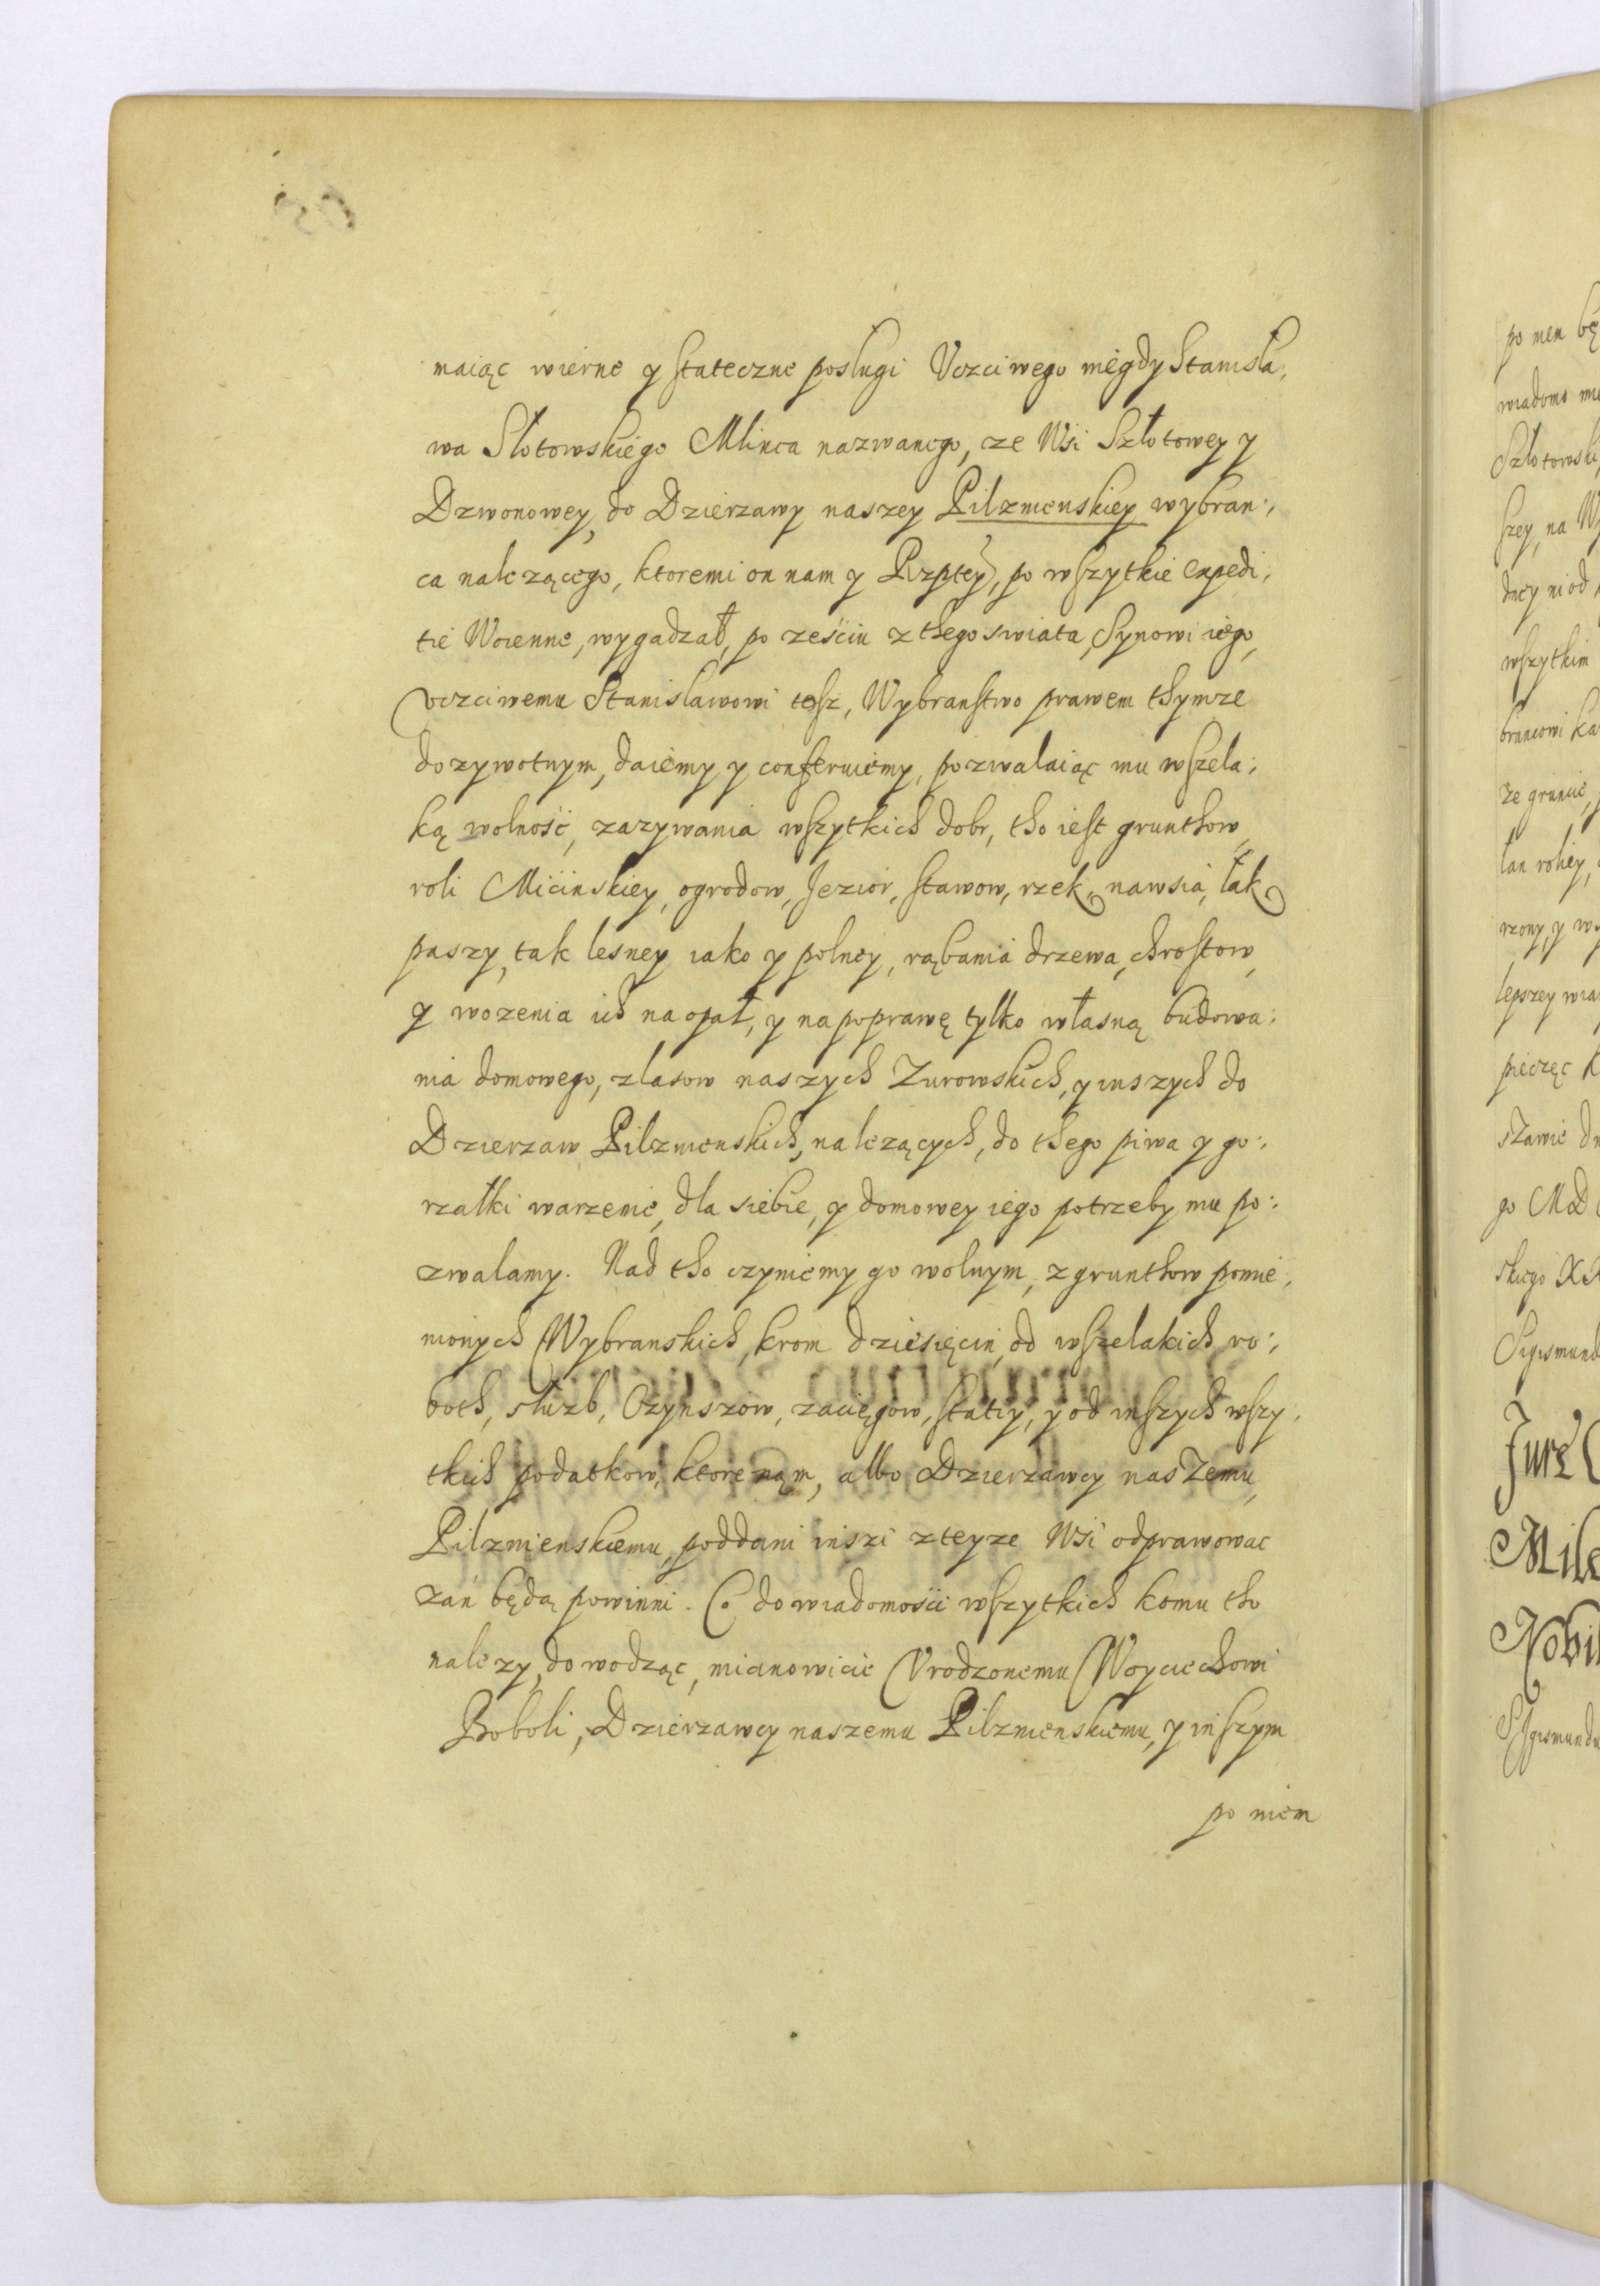 maiąc wierne y stateczne posługi Vczciwego niegdy Stanisła,
wa Słotowskiego Mlinca nazwanego, ze Wsi Szłotowey y
Dzwonowey, do Dzierzawy naszey Pilzmenskiey wybran:,
ca należącego, ktoremi on nam y Rzptey, po wszytkie expedi,
tie Woienne, wygadzał, po ześciu z thego swiata, Synowi iego,
vczciwemu Stanisławowi tesz, Wybranstwo prawem thymze
dozywotnym, daiemy y conferuiemy, pozwalaiąc mu wszela:
ką wolność, zazywania wszytkich dobr, tho iest grunthow,
roli Mićinskiey, ogrodow, Jezior, stawow, rzek, nawsia, łąk
paszy, tak lesney iako y polney, rąbania drzewa, chrostow,
y wozenia ich na opał, y na poprawę tylko własną budowa:
nia domowego, z lasow naszych Zurowskich, y inszych do
Dzierzaw Pilzmenskich, należących, do thego piwa y go:
rzałki warzenie, dla siebie, y domowey iego potrzeby mu po:
zwalamy. Nad tho czyniemy go wolnym, z grunthow pomie,
nionych Wybranskich, krom dziesięcin, od wszelakich ro:,
both, służb, Czynszow, zacięgow, stacy, y od inszych wszy,
tkich podatkow, ktore nąm, albo Dzierzawcy naszemu,
Pilzmienskiemu, poddani inszi z teyze Wsi odprawowac
zan będą powinni. Co do wiadomości wszytkich komu tho
nalezy, dowodząc, mianowicie Vrodzonemu Woyciechowi
Boboli, Dzierzawcy naszemu Pilzmenskiemu, y inszym
po niem